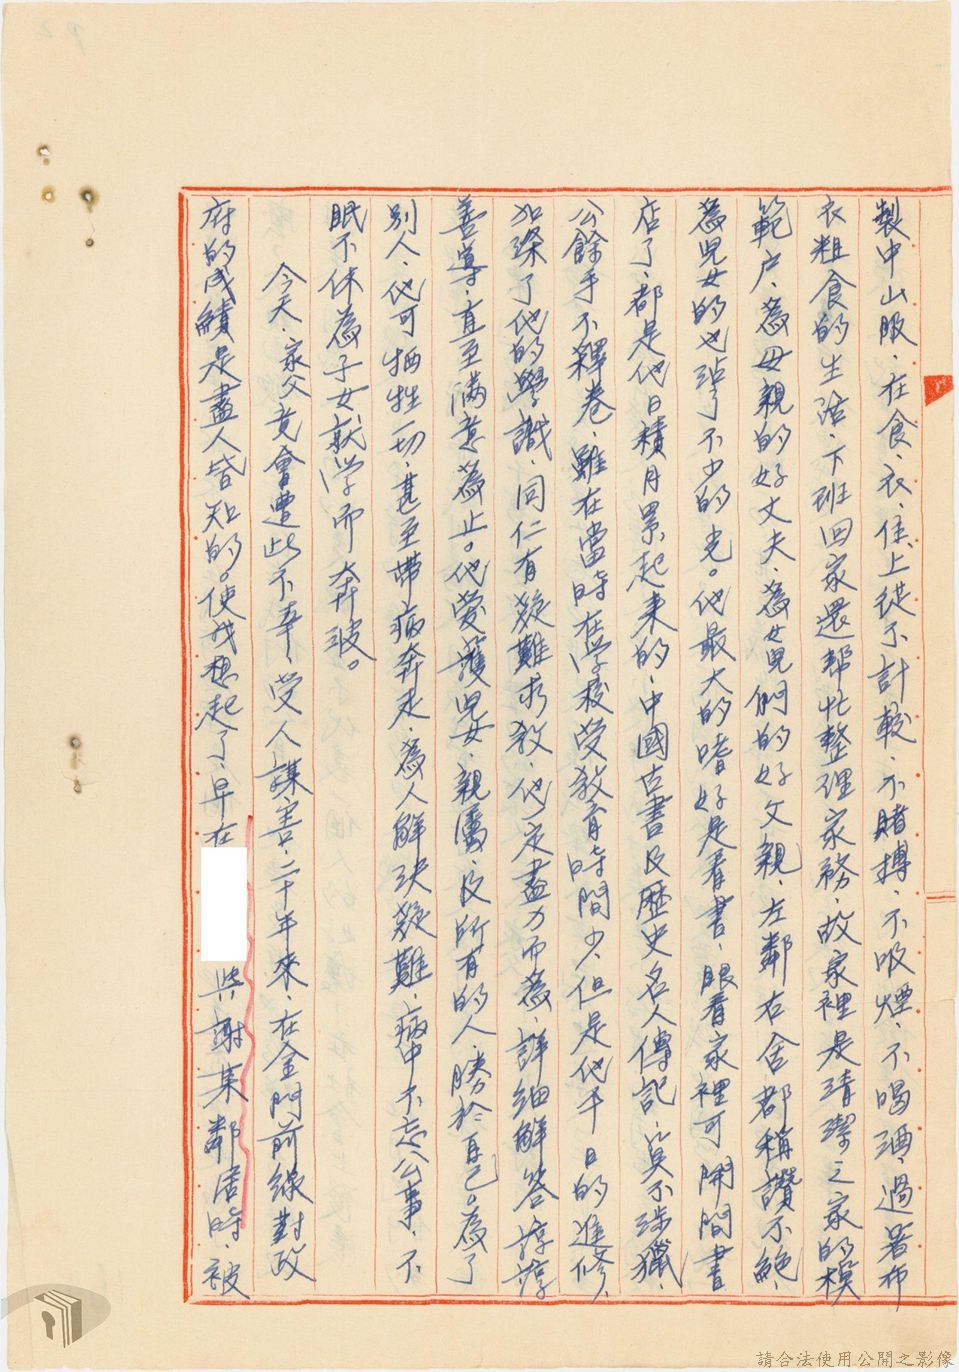 製中山服、在食、衣、住上從不計較、不賭搏、不吸煙、不喝酒、過著布
衣粗食的生活、下班回家還幫忙整理家務、故家裡是清潔之家的模
範户、為母親的好丈夫、為女兒們的好父親、左鄰右舍都稱讚不絕、
為兒女的也沾了不少的光。他最大的嗜好是看書、眼看家裡可開間書
店了、都是他日積月累起來的、中國古書及歷史名人傳記、莫不涉獵、
公餘手不釋卷、雖在當時在学校受教育時間少、但是他平日的進修、
加深了他的學識、同仁有疑難求教、他定盡力而為、詳細解答諄諄
善導、直至滿意為止。他愛護兒女、親屬、及所有的人、勝於自己。為了
別人、他可牺牲一切、甚至帶病奔走、為人解決疑難、病中不忘公事、不
眠不休為子女就学而奔波。
今天、家父竟會遭此不幸、受人謀害、二十年來、在金門前線對政
府的成績是盡人皆知的。使我想起了、早在
與謝某鄰居時、被
請合法使用公開之影像